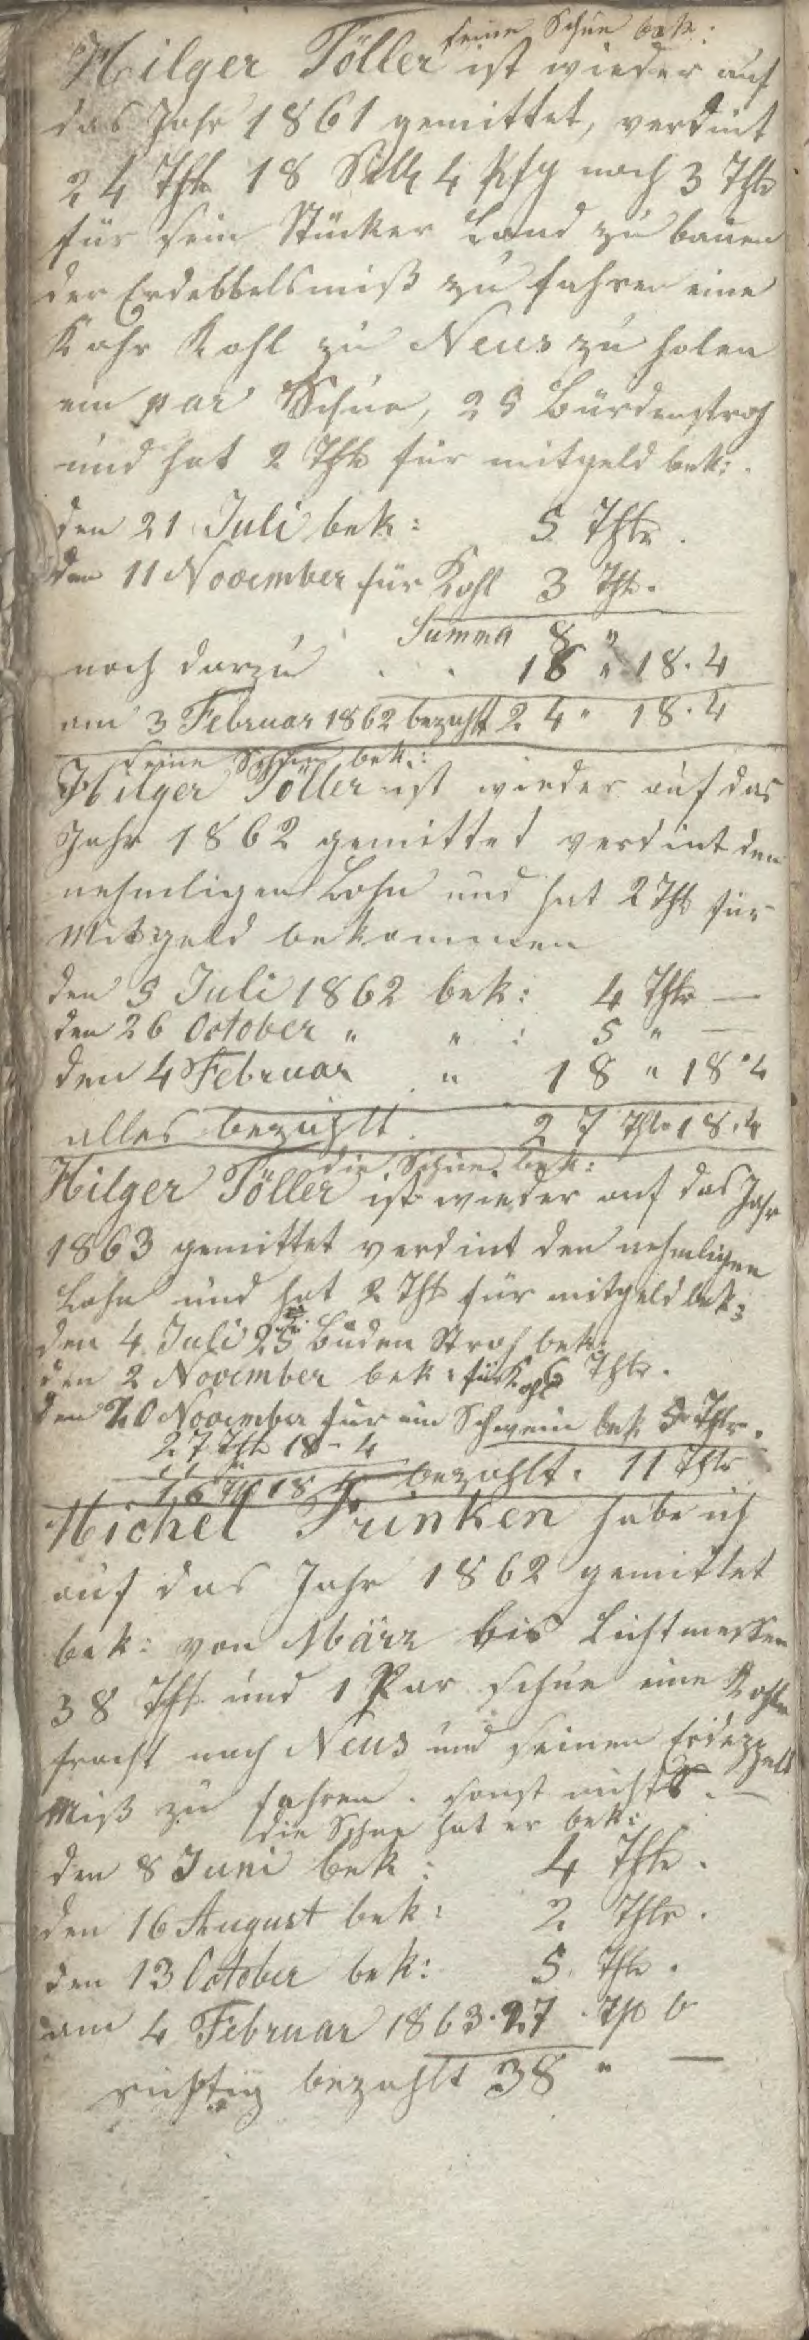 seine Schue bek:
Hilger Töller ist wieder auf
das Jahr 1861 gemittet, verdint
24 Thlr 18 Sillb 4 Pfg noch 3 Thlr
für sein Stücker Land zu bauen
der Erdebbelsmiß zu fahren eine
Kahr Kohl zu Neus zu holen
ein par Schue, 25 Bürdenstroh
und hat 2 Thlr für mitgeld bek:
den 21 Juli bek: 5 Thlr.
den 11 November für Kohl 3 Thlr.
Summa 8 "
noch darzu . . 16 " 18.4
am 3 Februar 1862 bezahlt 24 " 18.4
seine Schue bek:
Hilger Töller ist wieder auf das
Jahr 1862 gemittet verdint den
nehmligen Lohn und hat 2 Thlr für
Mitgeld bekommen
den 5 Juli 1862 bek: 4 Thlr —
den 26 October " " : 5 " —
den 4 Februar " 18 " 18.4
alles bezahlt. 27 Thlr 18.4
die Schue bek:
Hilger Töller ist wieder auf das Jahr
1863 gemittet verdint den nehmligen
Lohn und hat 2 Thlr für mitgeld bek:
den 4 Juli 25 Büden Stroh bek:
den 2 November bek: für Kohl 6 Thlr.
den 20 November für ein Schwein bek 5 Thlr.
27 Thlr 18 - 4
11
16 18 4 bezahlt. 11 Thlr
Michel Frinken habe ich
auf das Jahr 1862 gemittet
bek: von März bis Lichtmessen
38 Thlr und 1 Par schue eine Kohle
fracht nach Neus und seinen Erdeppels
Miß zu fahren. sonst nichts. —
die Schue hat er bek:
den 8 Juni bek: 4 Thlr.
den 16 August bek: 2 Thlr.
den 13 October bek: 5 Thlr.
am 4 Februar 1863. 27
richtig bezahlt 38 " —